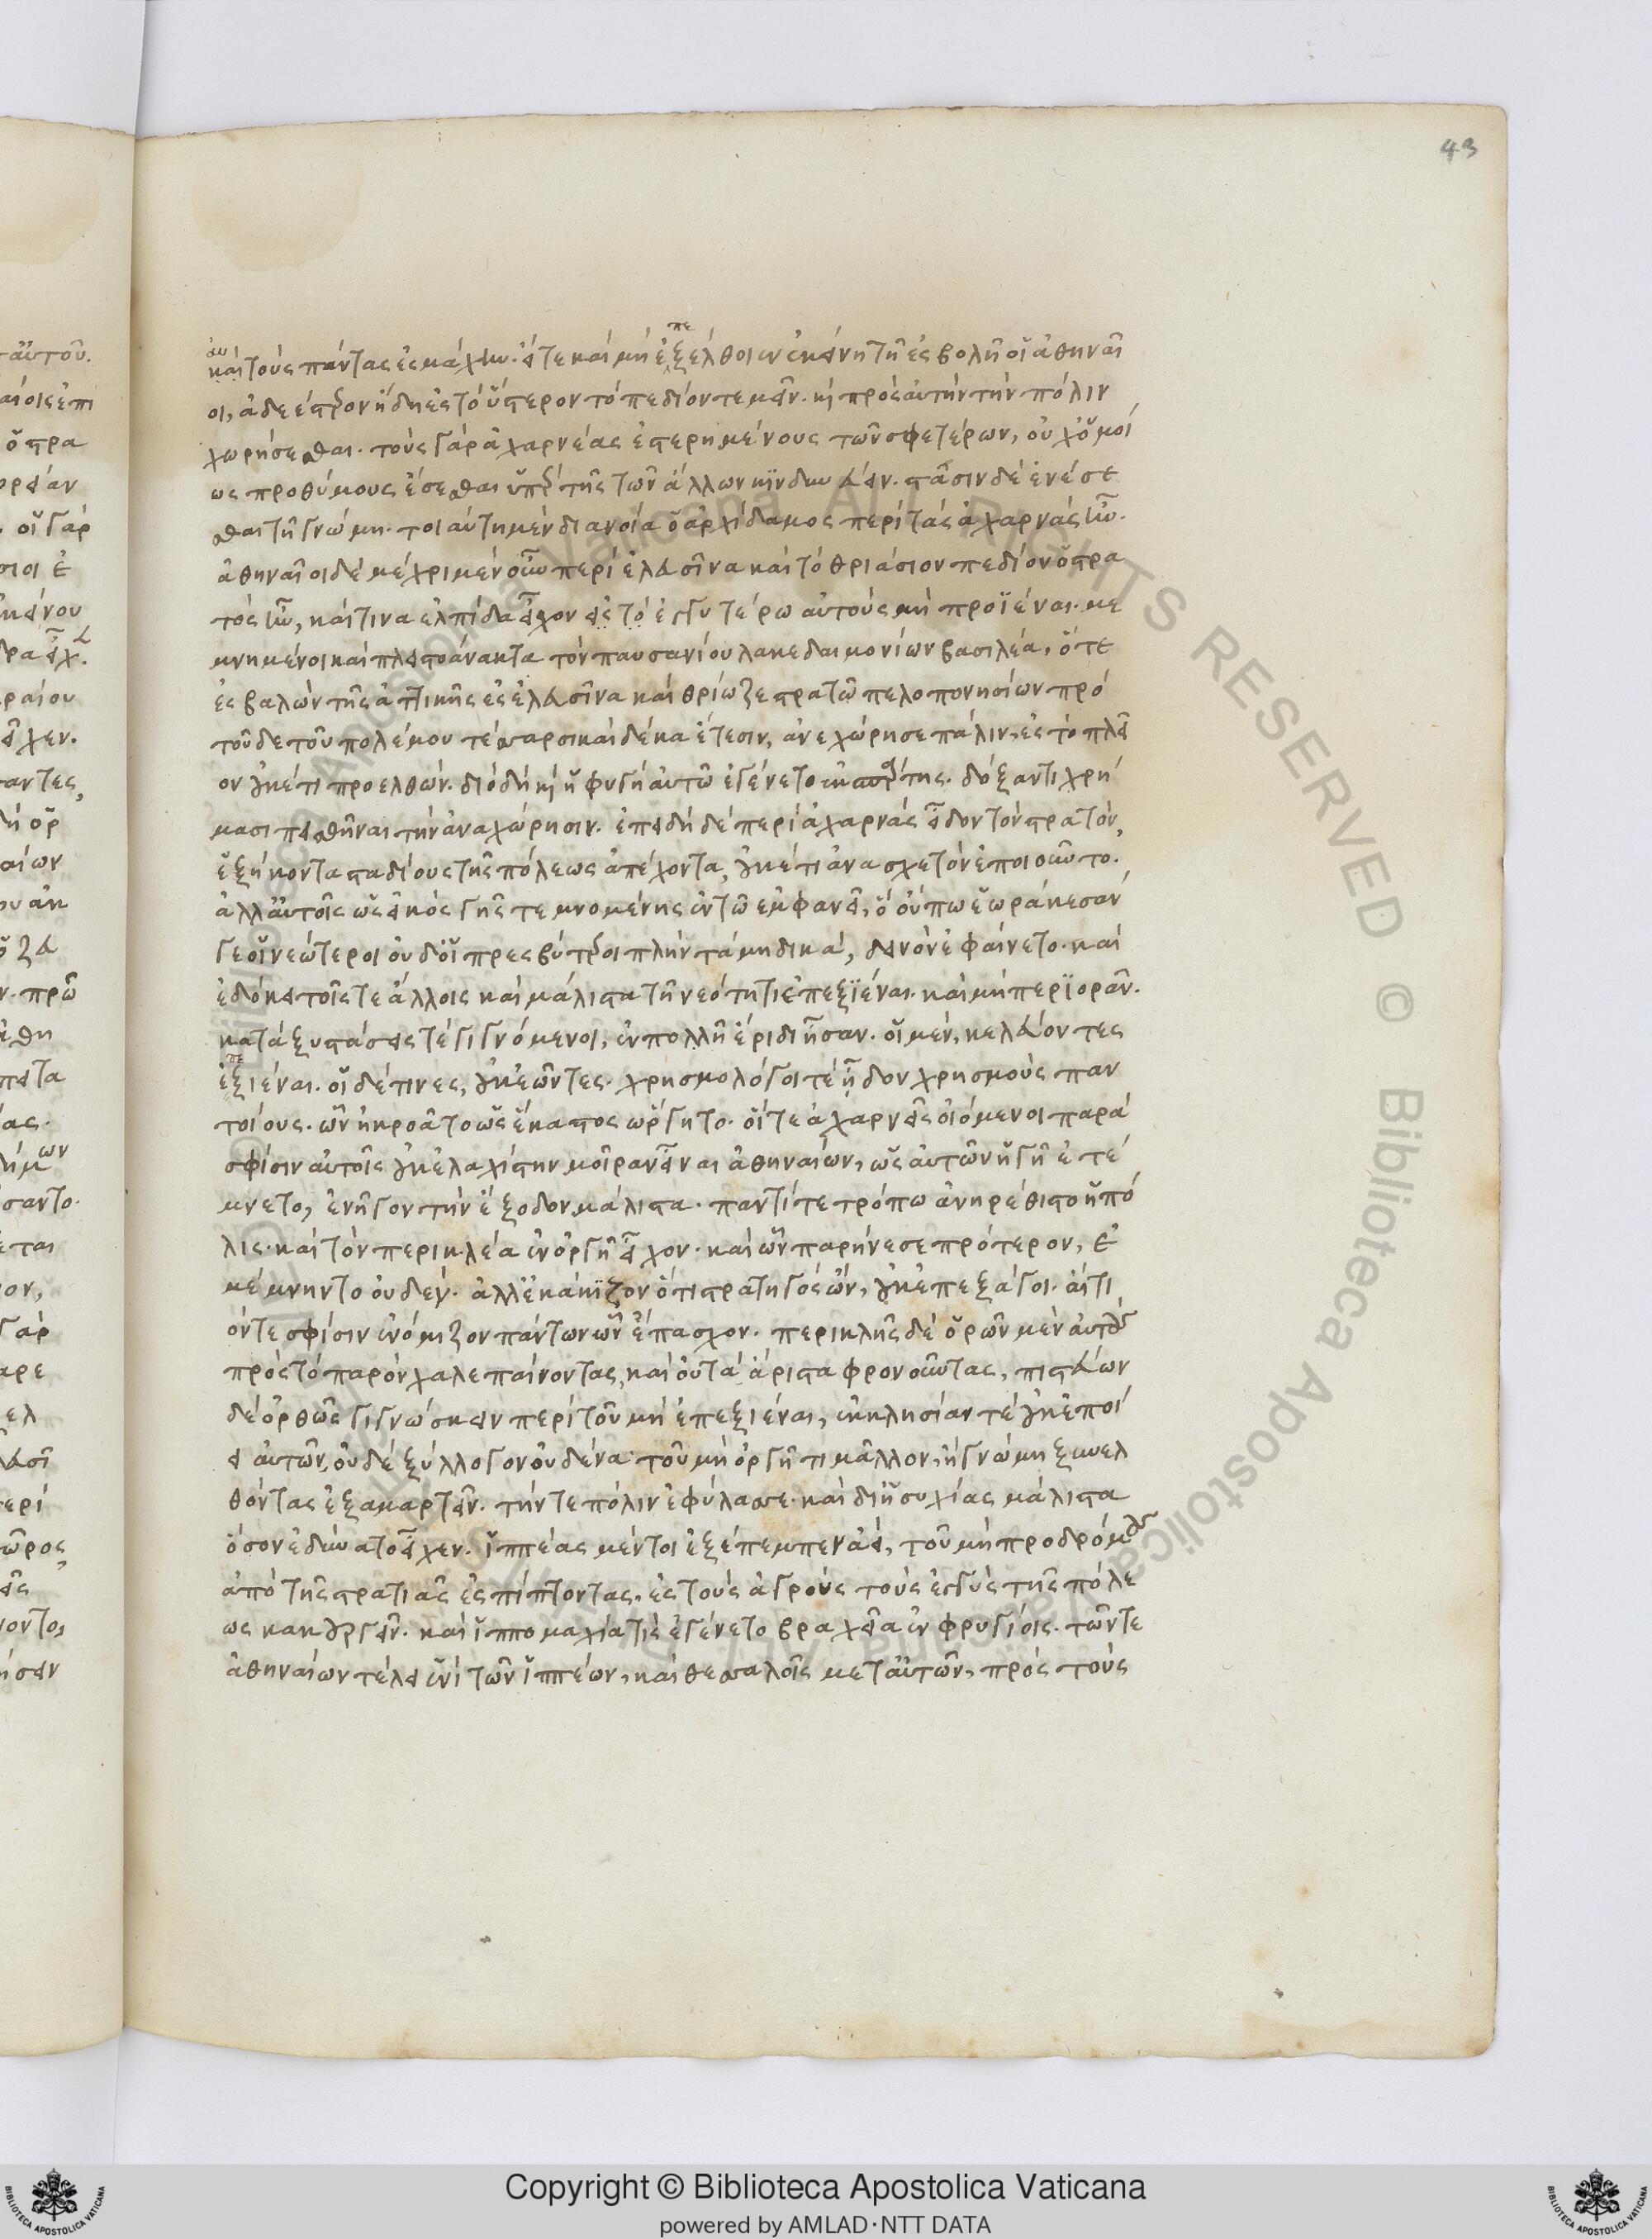 43
καὶ τοὺς πάντας ἐς μάχην. εἴτε καὶ μὴ ἐπεξέλθοιεν ἐκείνη τῆ ἐσβολῆ οἱ ἀθηναῖ
οι, ἀδεέστερον ἤδη ἐς τὸ ὕστερον τὸ πεδίον τεμεῖν. καὶ πρὸς αὐτὴν τὴν πόλιν
χωρήσεσθαι. τοὺς γὰρ ἀχαρνέας ἐστερημένους τῶν σφετέρων, οὐχ ὁμοί
ως προθύμους ἔσεσθαι ὑπὲρ τῆς τῶν ἄλλων κινδυνεύειν. στάσιν δὲ ἐνέσε
σθαι τῆ γνώμη. τοιαύτη μὲν διανοία ὁ ἀρχίδαμος περὶ τὰς ἀχαρνὰς ἦν.
ἀθηναῖοι δὲ μέχρι μὲν οὖν περὶ ἐλευσῖνα καὶ τὸ θριάσιον πεδίον ὁ στρα
τὸς ἦν, καί τινα ἐλπίδα εἶχον ἐς τὸ ἐγγυτέρω αὐτοὺς μὴ προϊέναι. με
μνημένοι καὶ πλειστοάνακτα τὸν παυσανίου λακεδαιμονίων βασιλέα, ὅτε
ἐσβαλὼν τῆς ἀττικῆς ἐς ἐλευσῖνα καὶ θρίωζε στρατῶ πελοπονησίων πρὸ
τοῦδε τοῦ πολέμου τέσσαρσι καὶ δέκα ἔτεσιν, ἀνεχώρησε πάλιν, ἐς τὸ πλεῖ
ον οὐκέτι προελθών. διὸ δὴ καὶ ἡ φυγὴ αὐτῶ ἐγένετο ἐκ σπάρτης. δόξαντι χρή
μασι πεισθῆναι τὴν ἀναχώρησιν. ἐπειδὴ δὲ περὶ ἀχαρνὰς εἶδον τὸν στρατὸν,
ἑξήκοντα σταδίους τῆς πόλεως ἀπέχοντα, οὐκέτι ἀνασχετὸν ἐποιοῦντο.
ἀλλ' αὐτοῖς ὡς εἰκὸς γῆς τεμνομένης ἐν τῶ ἐμφανεῖ, ὃ οὔπω ἑωράκεσάν
γε οἱ νεώτεροι οὐδ' οἱ πρεσβύτεροι πλὴν τὰ μηδικὰ, δεινὸν ἐφαίνετο. καὶ
ἐδόκει τοῖς τε ἄλλοις καὶ μάλιστα τῆ νεότητι ἐπεξϊέναι. καὶ μὴ περιϊορᾶν.
κατὰ ξυστάσεις τὲ γιγνόμενοι, ἐν πολλῆ ἔριδι ἦσαν. οἱ μὲν, κελεύοντες
ἐπεξιέναι. οἱ δέ τινες, οὐκ ἐῶντες. χρησμολόγοι τὲ ἦδον χρησμοὺς παν
τοίους. ὧν ἠκροᾶτο ὡς ἕκαστος ὥργητο. οἵ τε ἀχαρνεῖς οἰόμενοι παρὰ
σφίσιν αὐτοῖς οὐκ ἐλαχίστην μοῖραν εἶναι ἀθηναίων, ὡς αὐτῶν ἡ γῆ ἐτέ
μνετο, ἐνῆγον τὴν ἔξοδον μάλιστα. παντί τε τρόπω ἀνηρέθιστο ἡ πό
λις. καὶ τὸν περικλέα ἐν ὀργῆ εἶχον. καὶ ὧν παρήνεσε πρότερον, ἐ
μέμνηντο οὐδέν. ἀλλ' ἐκάκιζον ὅτι στρατηγὸς ὢν, οὐκ ἐπεξάγοι. αἴτι
όν τε σφίσιν ἐνόμιζον πάντων ὧν ἔπασχον. περικλῆς δὲ ὁρῶν μὲν αὐτοὺς
πρὸς τὸ παρὸν χαλεπαίνοντας, καὶ οὐ τὰ ἄριστα φρονοῦντας, πιστεύων
δὲ ὀρθῶς γιγνώσκειν περὶ τοῦ μὴ ἐπεξιέναι, ἐκκλησίαν τὲ οὐκ ἐποί
ει αὐτῶν, οὐδὲ ξύλλογον οὐδένα τοῦ μὴ ὀργῆ τι μᾶλλον, ἢ γνώμη ξυνελ
θόντας ἐξαμαρτεῖν. τήν τε πόλιν ἐφύλασσε. καὶ δι' ἡσυχίας μάλιστα
ὅσον ἐδύνατο εἶχεν. ἱππέας μέντοι ἐξέπεμπεν ἀεὶ, τοῦ μὴ προδρόμους
ἀπὸ τῆς στρατιᾶς ἐσπίπτοντας, ἐς τοὺς ἀγροὺς τοὺς ἐγγὺς τῆς πόλε
ως κακουργεῖν. καὶ ἱππομαχία τὶς ἐγένετο βραχεῖα ἐν φρυγίοις. τῶν τε
ἀθηναίων τέλει ἑνὶ τῶν ἱππέων, καὶ θεσσαλοῖς μετ' αὐτῶν, πρὸς τοὺς
Copyright © Biblioteca Apostolica Vaticana
powered by AMLAD·NTT DATA